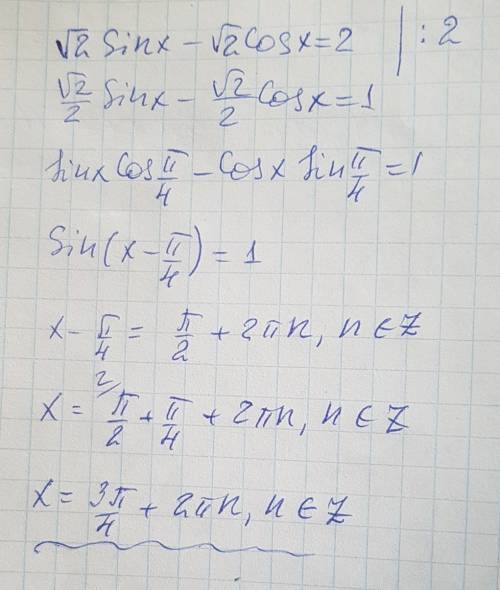 √2 Sinx − √2 Cosx = 2 | : 2
√2/2 Sinx − √2/2 Cosx = 1
Sinx Cos π/4 − Cosx Sin π/4 = 1
Sin(x − π/4) = 1
x − π/4 = π/2 + 2πn, n ∈ Z
x = 2/ π/2 + π/4 + 2πn, n ∈ Z
x = 3π/4 + 2πn, n ∈ Z